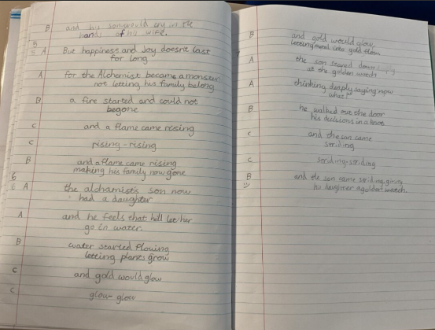 B and his son would cry in the
hands of his wife.
5
A But happiness and Joy doesn't last
for long
A for the Alchemist became a monster
not letting his family belong
B a fire started and could not
begone
C and a flame came rising
C rising-rising
B and a flame came rising
making his family now gone
6
A the alchemist's son now
had a daughter
A and he feels that he'll let her
go in water
B water started flowing
letting plants grow
C and gold would glow
C glow-glow
B and gold would glow
into gold
A the son stared down
at the golden
A thinking deeply saying now
what
B he walked over the door
his decisions in a
C and the son came
striding
C striding-striding
B and the son came striding
his daughter a golden